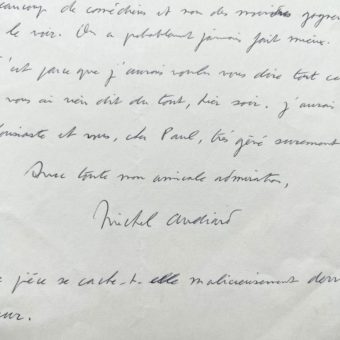 eaucoup de comédiens et non des moindres gagner
le voir. On a probablement jamais fait mieux.
c'est parce que j'aurais voulu vous dire tout ce
vous ai rien dit du tout, hier soir. J'aurai
ousiaste et vous, cher Paul, très gêné surement
Avec toute mon amicale admiration,
Michel Audiard
pièce se cache-t-elle malicieusement derr
ur.